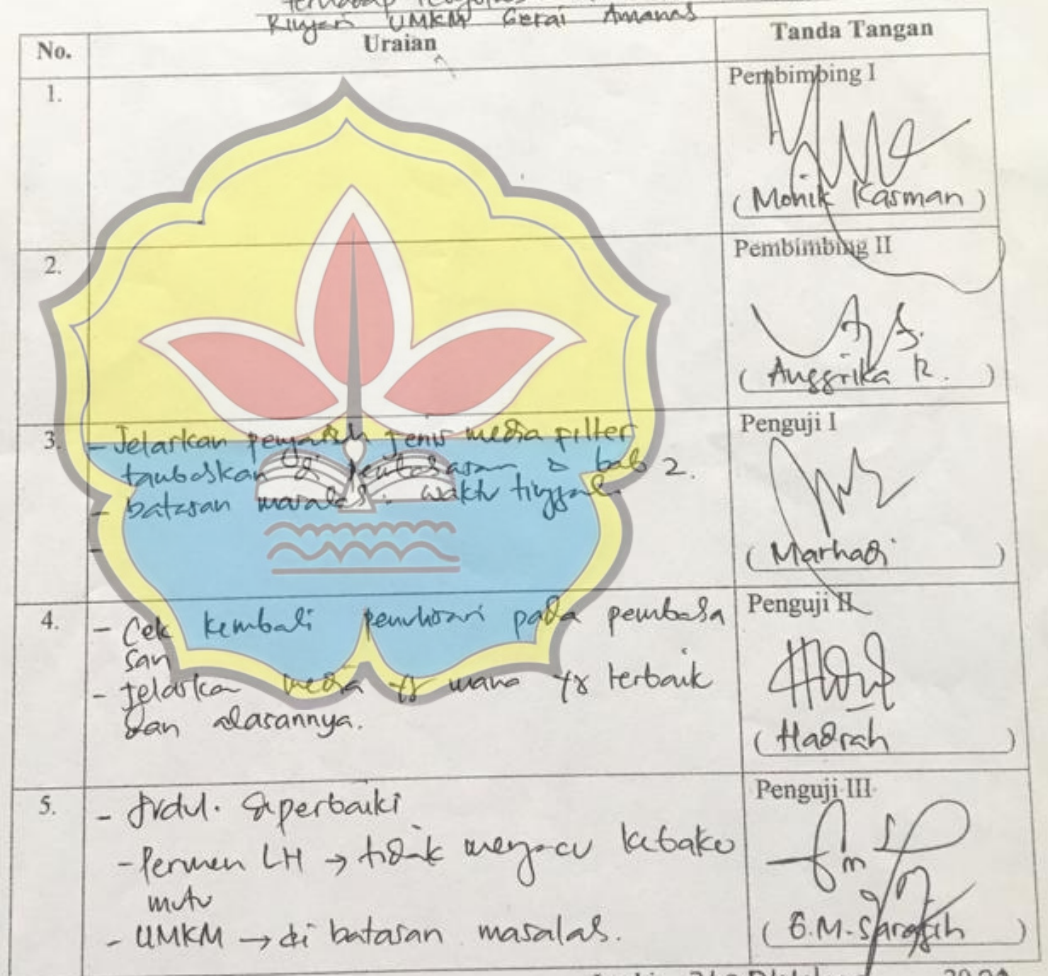 terhadap
UMKM Gerai Amanas
No.
Uraian
Tanda Tangan
1.
Pembimbing I
( Monik Kasman )
2.
Pembimbing II
( Anggrika R. )
3.
- Jelaskan pengaruh jenis media filter
di bab 2.
- batasan masalah : waktu tinggal
-
Penguji I
( Marhadi )
4.
- Cek kembali pada pembaha
san
- jelaskan media yg mana yg terbaik
dan alasannya.
Penguji II
( Hadrah )
5.
- Judul. diperbaiki
- Permen LH → tidak mengacu kebaku
mutu
- UMKM → di batasan masalah.
Penguji III